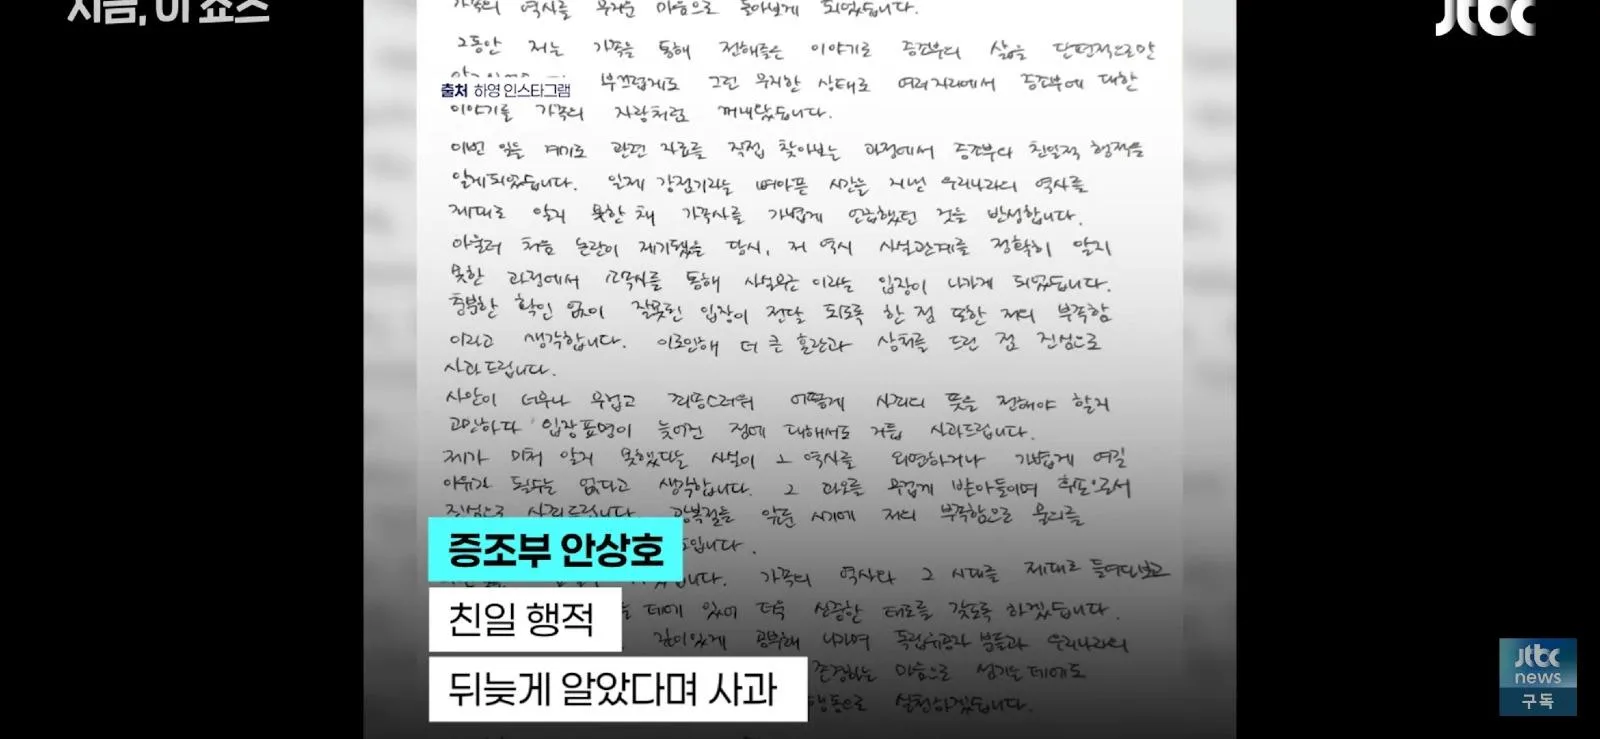 지금, 이 쇼츠
jtbc
가족의 역사를 무거운 마음으로 돌아보게 되었습니다.
그동안 저는 가족을 통해 전해들은 이야기로 증조부의 삶을 단편적으로만
부끄럽게도 그런 무지한 상태로 여러자리에서 증조부에 대한
출처 하영 인스타그램
이야기를 가족의 자랑처럼 꺼내왔습니다.
이번 일을 계기로 관련 자료를 직접 찾아보는 과정에서 증조부의 친일적 행적을
알게되었습니다. 일제 강점기라는 뼈아픈 시간을 지낸 우리나라의 역사를
제대로 알지 못한 채 가족사를 가볍게 언급했던 것을 반성합니다.
아울러 처음 논란이 제기됐을 당시, 저 역시 사실관계를 정확히 알지
못한 과정에서 소속사를 통해 사실무근이라는 입장이 나가게 되었습니다.
충분한 확인 없이 잘못된 입장이 전달 되도록 한 점 또한 저의 부족함
이라고 생각합니다. 이로인해 더 큰 혼란과 상처를 드린 점 진심으로
사과드립니다.
사안이 너무나 무겁고 죄송스러워 어떻게 사죄의 뜻을 전해야 할지
고민하다 입장표명이 늦어진 점에 대해서도 거듭 사과드립니다.
제가 미처 알지 못했다는 사실이 그 역사를 외면하거나 가볍게 여길
이유가 될수는 없다고 생각합니다. 그 과오를 무겁게 받아들이며 후손으로서
진심으로 사과드립니다. 광복절을 앞둔 시기에 저의 부족함으로 물의를
증조부 안상호
가족의 역사와 그 시대를 제대로 들여다보고
데에 있어 더욱 신중한 태도를 갖도록 하겠습니다.
친일 행적
깊이있게 공부해 나가며 독립유공자 분들과 우리나라의
존경하는 마음으로 섬기는데에도
뒤늦게 알았다며 사과
행동으로 실천하겠습니다.
jtbc
news
구독